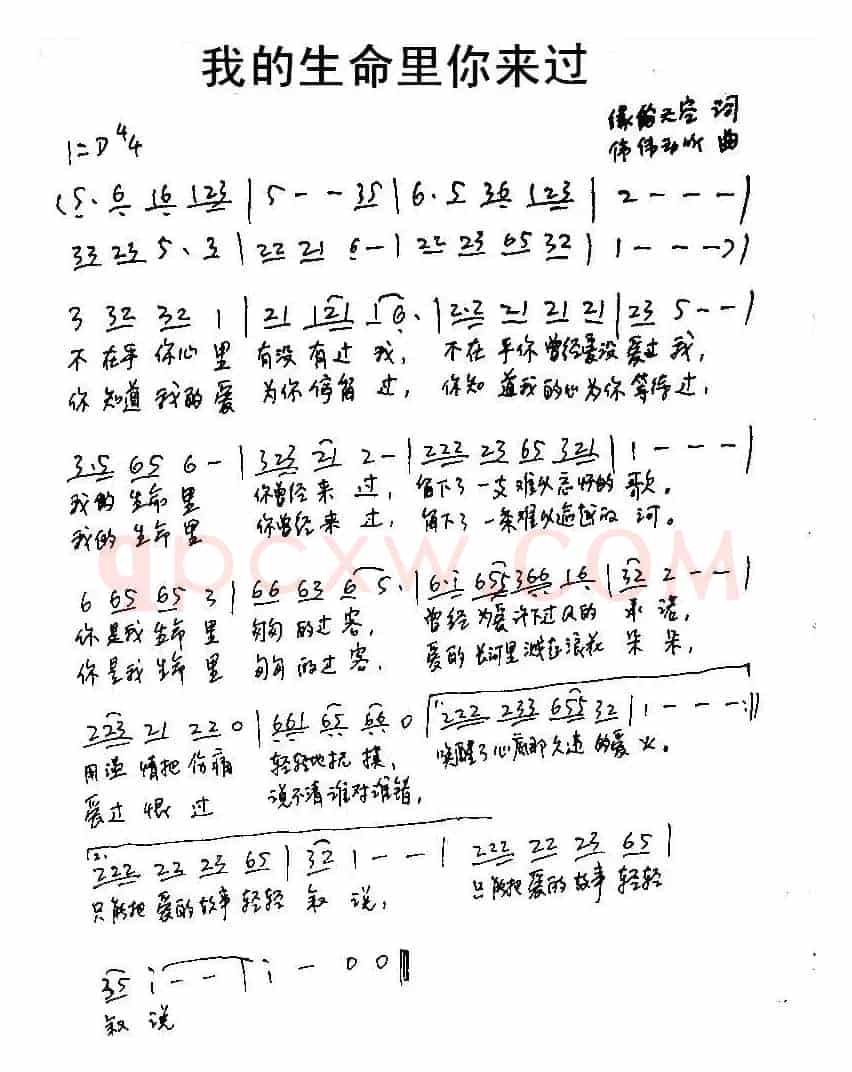 我的生命里你来过
1=D 4/4
天空 词
伟伟 曲
(5· 6 16 123 | 5 - - 35 | 6· 5 36 123 | 2 - - - |
33 23 5· 3 | 22 21 6 - | 22 23 65 32 | 1 - - -) |
3 32 32 1 | 21 121 16· | 2·2 21 21 21 | 23 5 - - |
不在乎你心里 有没有过我, 不在乎你曾经爱没爱过我,
你知道我的爱 为你停留过, 你知道我的心为你等待过,
3·5 65 6 - | 323 21 2 - | 222 23 65 321 | 1 - - - |
我的生命里 你曾经来过, 留下了一支难以忘怀的歌。
我的生命里 你曾经来过, 留下了一条难以逾越的河。
qpcxw.COM
6 65 65 3 | 66 63 6 5· | 6·i 655 366 16 | 32 2 - - |
你是我生命里 匆匆的过客, 曾经为爱许下过的承诺,
你是我生命里 匆匆的过客, 爱的长河里溅在浪花朵朵,
223 21 22 0 | 661 65 66 0 | 1. 222 233 655 32 | 1 - - - :||
用温情把伤痛 轻轻地抚摸, 唤醒了心底那久违的爱火。
爱过恨过 说不清谁对谁错,
2. 222 22 23 65 | 32 1 - - | 222 22 23 65 |
只能把爱的故事轻轻叙说, 只能把爱的故事轻轻
35 i - - | i - 0 0 ||
叙说